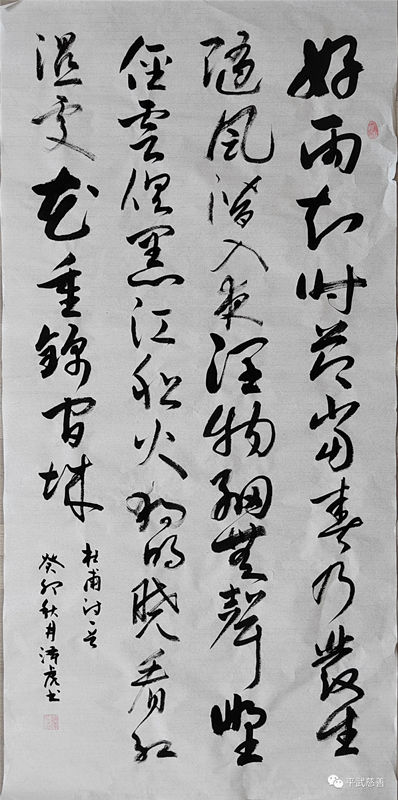 好雨知时节當春乃發生
随風潜入夜润物细無聲野
径雲俱黑江船火独明晓看红
湿处花重錦官城
杜甫诗一首
癸卯秋月虎书
平武慈善